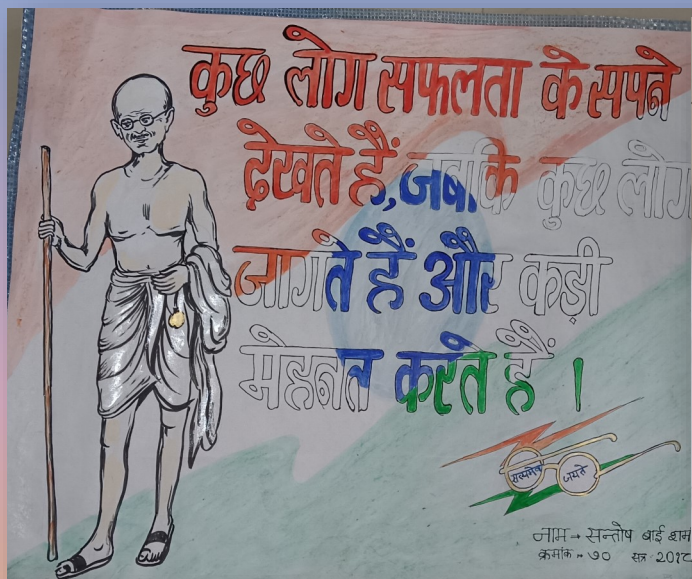 कुछ लोग सफलता के सपने
देखते हैं, जबकि कुछ लोग
जागते हैं और कड़ी
मेहनत करते हैं ।
सत्यमेव जयते
नाम → सन्तोष बाई शर्मा
क्रमांक = ७० सत्र 201८